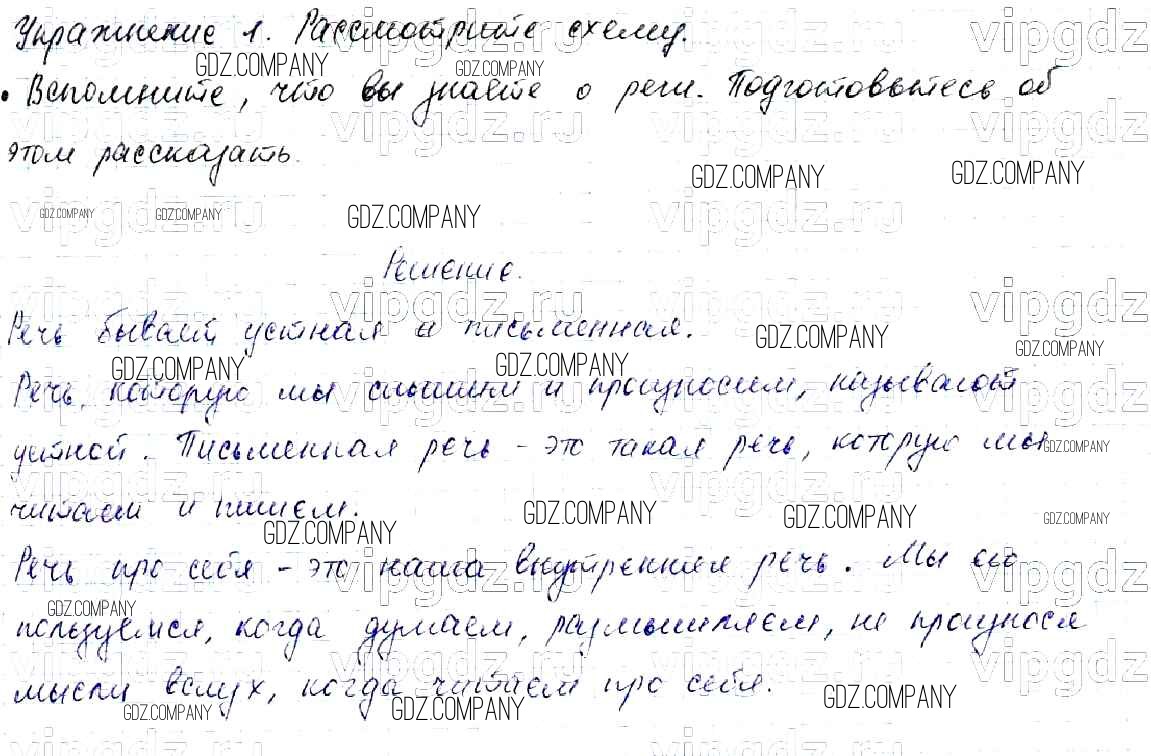 Упражнение 1. Рассмотрите схему.
• Вспомните, что вы знаете о речи. Подготовьтесь об
этом рассказать.
Решение.
Речь бывает устная и письменная.
Речь, которую мы слышим и произносим, называют
устной. Письменная речь - это такая речь, которую мы
читаем и пишем.
Речь про себя - это наша внутренняя речь. Мы ею
пользуемся, когда думаем, размышляем, не произнося
мысли вслух, когда читаем про себя.
GDZ.COMPANY
vipgdz.ru